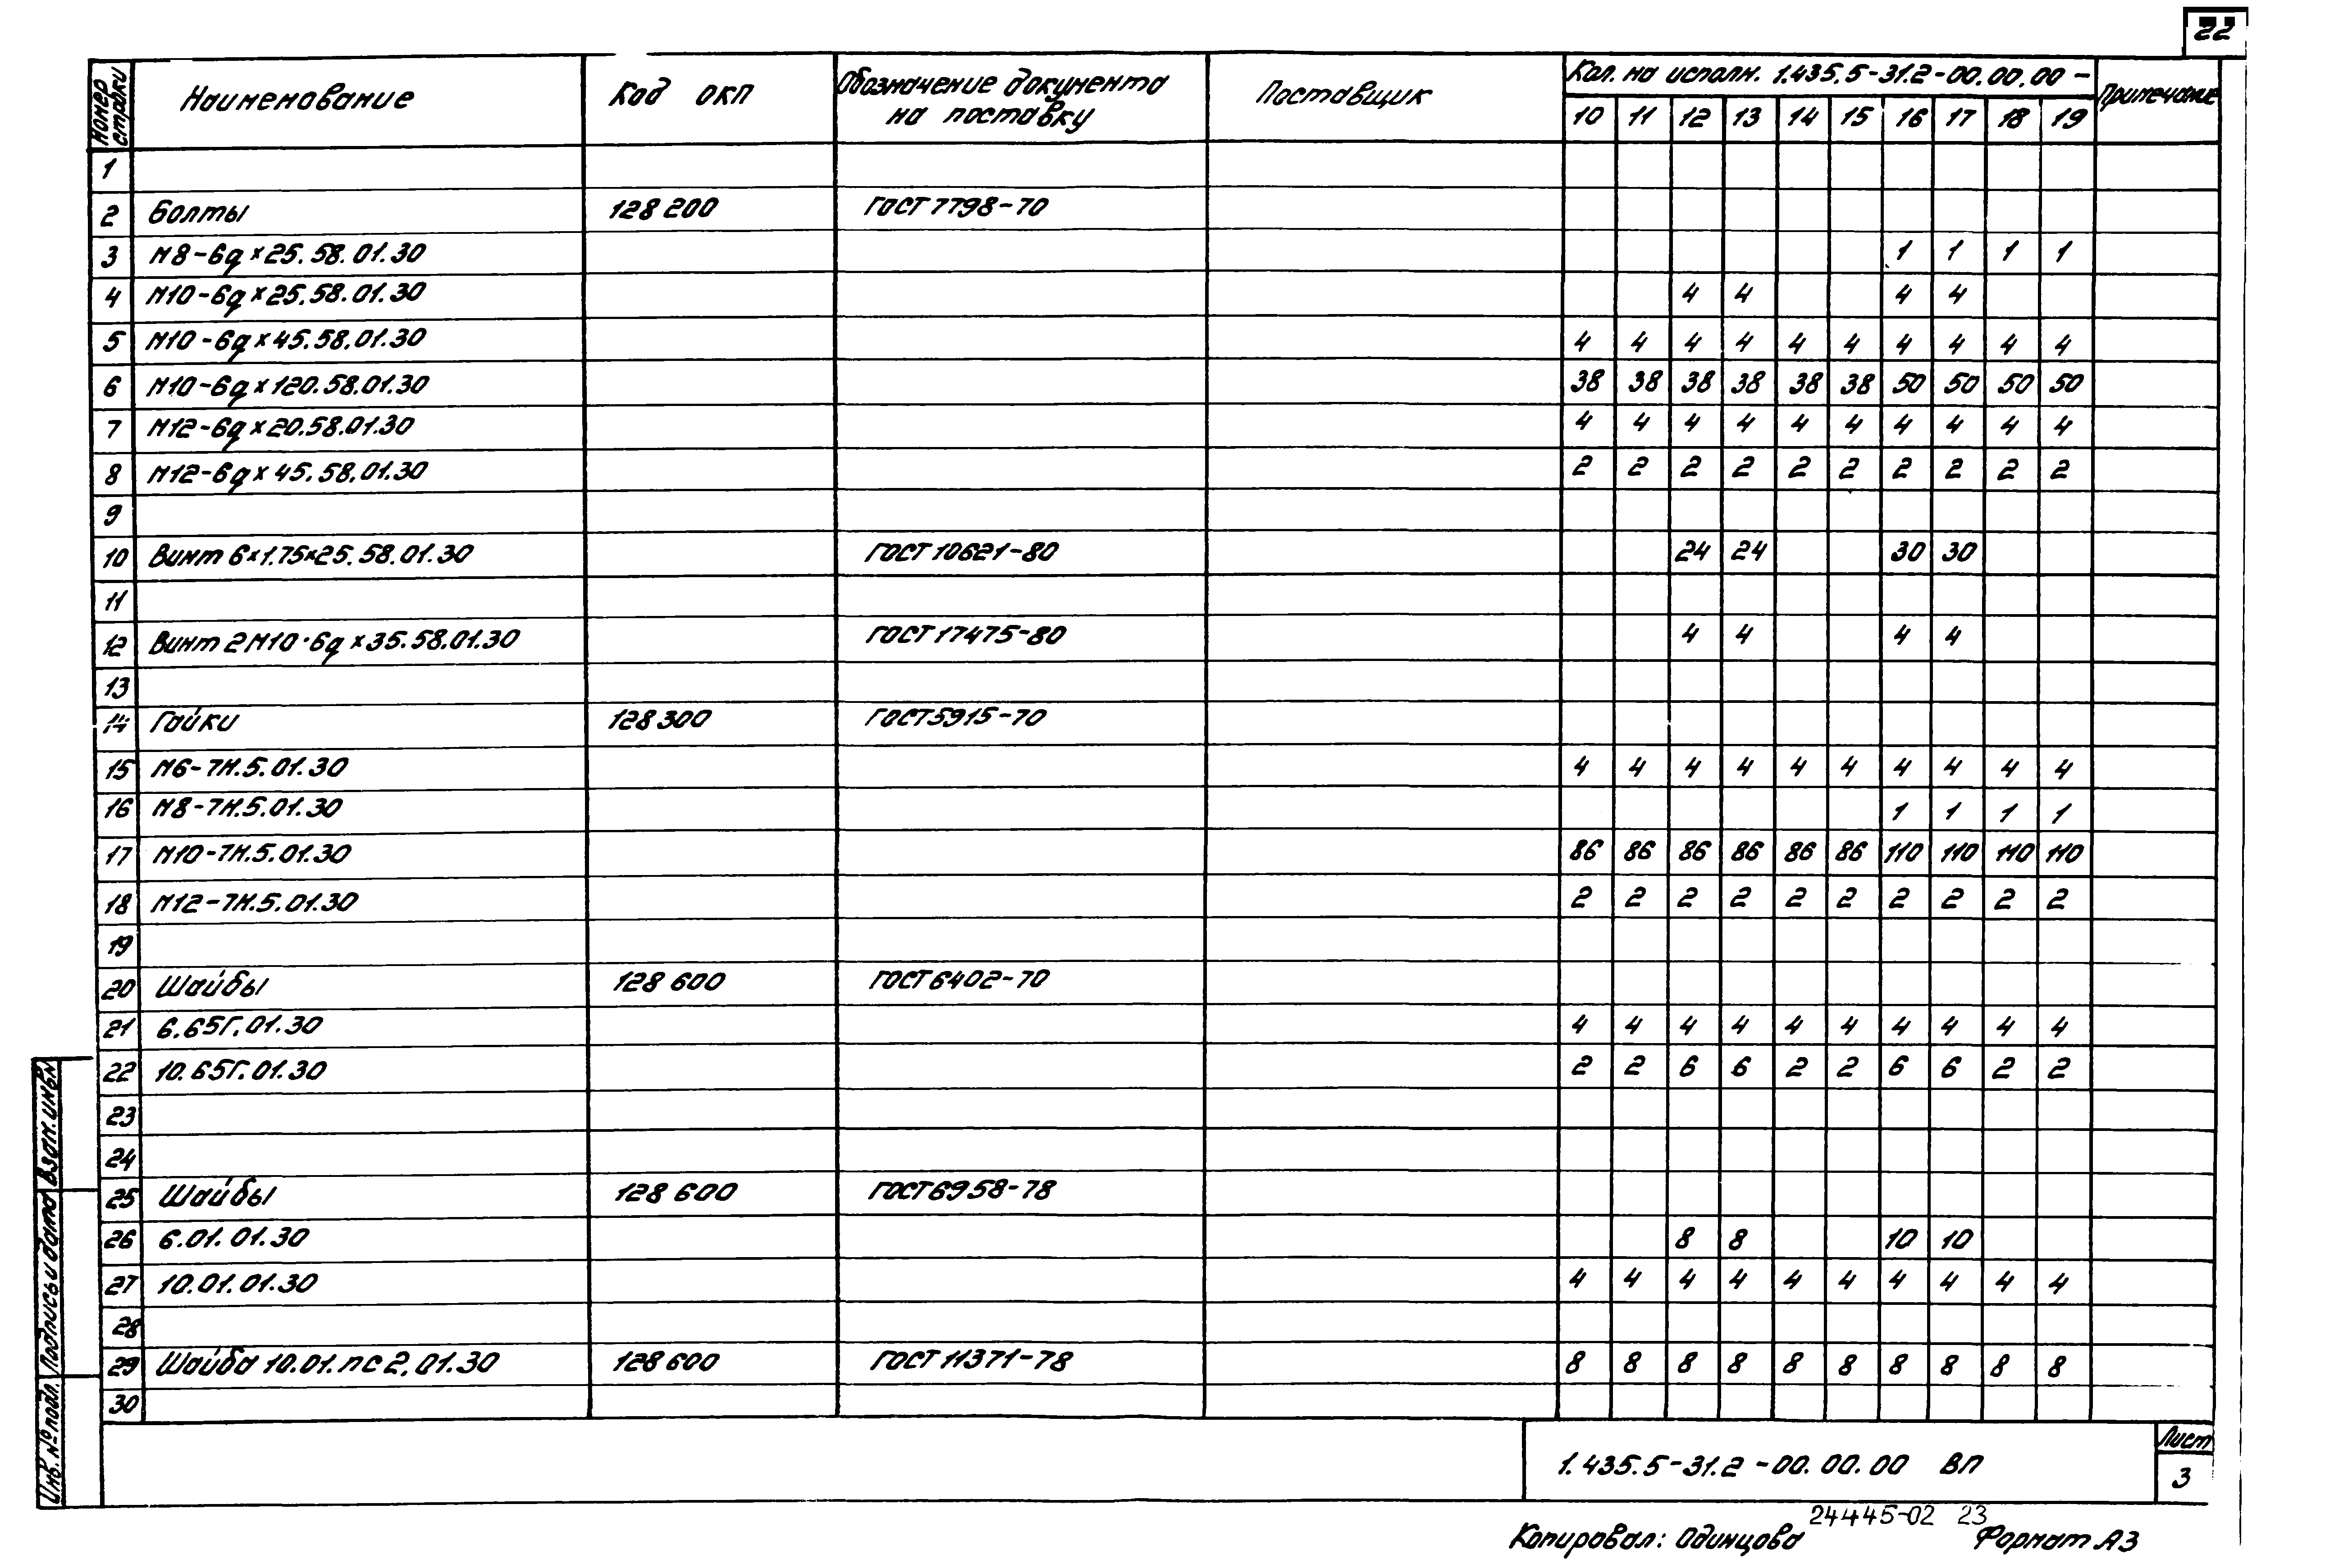 22
Номер строки Наименование Код ОКП Обозначение документа на поставку Поставщик Кол. на исполн. 1.435.5-31.2-00.00.00- Примечание
10 11 12 13 14 15 16 17 18 19
1
2 Болты 128 200 ГОСТ 7798-70
3 М8-6g×25.58.01.30 1 1 1 1
4 М10-6g×25.58.01.30 4 4 4 4
5 М10-6g×45.58.01.30 4 4 4 4 4 4 4 4 4 4
6 М10-6g×120.58.01.30 38 38 38 38 38 38 50 50 50 50
7 М12-6g×20.58.01.30 4 4 4 4 4 4 4 4 4 4
8 М12-6g×45.58.01.30 2 2 2 2 2 2 2 2 2 2
9
10 Винт 6×1.75×25.58.01.30 ГОСТ 10621-80 24 24 30 30
11
12 Винт 2М10·6g×35.58.01.30 ГОСТ 17475-80 4 4 4 4
13
14 Гайки 128 300 ГОСТ 5915-70
15 М6-7Н.5.01.30 4 4 4 4 4 4 4 4 4 4
16 М8-7Н.5.01.30 1 1 1 1
17 М10-7Н.5.01.30 86 86 86 86 86 86 110 110 110 110
18 М12-7Н.5.01.30 2 2 2 2 2 2 2 2 2 2
19
20 Шайбы 128 600 ГОСТ 6402-70
21 6.65Г.01.30 4 4 4 4 4 4 4 4 4 4
22 10.65Г.01.30 2 2 6 6 2 2 6 6 2 2
23
24
25 Шайбы 128 600 ГОСТ 6958-78
26 6.01.01.30 8 8 10 10
27 10.01.01.30 4 4 4 4 4 4 4 4 4 4
28
29 Шайба 10.01.пс2.01.30 128 600 ГОСТ 11371-78 8 8 8 8 8 8 8 8 8 8
30
Инв. № подл. Подпись и дата Взам. инв. №
1.435.5-31.2-00.00.00 ВП
Лист
3
24445-02 23
Копировал: Одинцова Формат А3